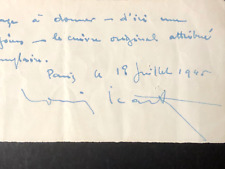 à donner - d'ici un
le cuivre original attribué
Paris le 18 Juillet 1945
Louis Icart